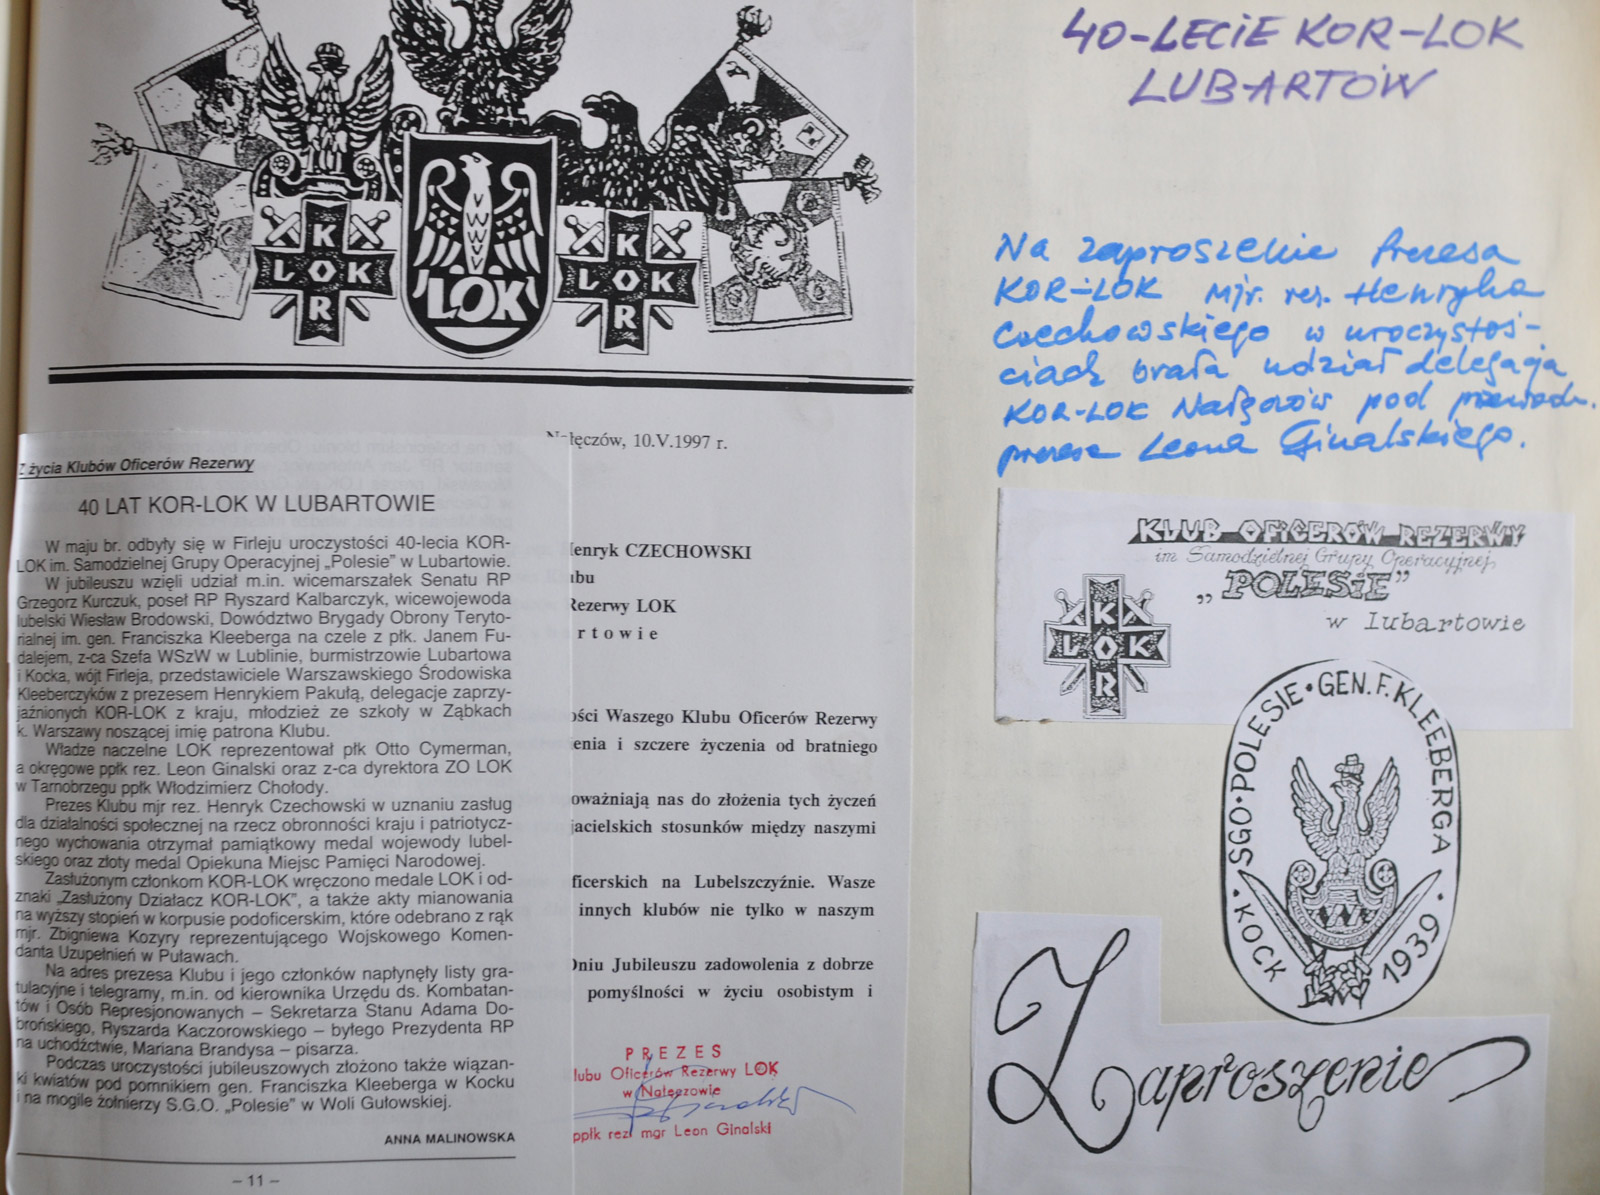 K
LOK
O
R
LOK
K
LOK
O
R
Nałęczów, 10.V.1997 r.
Z życia Klubów Oficerów Rezerwy
40 LAT KOR-LOK W LUBARTOWIE
W maju br. odbyły się w Firleju uroczystości 40-lecia KOR-
LOK im. Samodzielnej Grupy Operacyjnej „Polesie" w Lubartowie.
W jubileuszu wzięli udział m.in. wicemarszałek Senatu RP
Grzegorz Kurczuk, poseł RP Ryszard Kalbarczyk, wicewojewoda
lubelski Wiesław Brodowski, Dowództwo Brygady Obrony Teryto-
rialnej im. gen. Franciszka Kleeberga na czele z płk. Janem Fu-
dalejem, z-ca Szefa WSzW w Lublinie, burmistrzowie Lubartowa
i Kocka, wójt Firleja, przedstawiciele Warszawskiego Środowiska
Kleeberczyków z prezesem Henrykiem Pakułą, delegacje zaprzy-
jaźnionych KOR-LOK z kraju, młodzież ze szkoły w Ząbkach
k. Warszawy noszącej imię patrona Klubu.
Władze naczelne LOK reprezentował płk Otto Cymerman,
a okręgowe ppłk rez. Leon Ginalski oraz z-ca dyrektora ZO LOK
w Tarnobrzegu ppłk Włodzimierz Chołody.
Prezes Klubu mjr rez. Henryk Czechowski w uznaniu zasług
dla działalności społecznej na rzecz obronności kraju i patriotycz-
nego wychowania otrzymał pamiątkowy medal wojewody lubel-
skiego oraz złoty medal Opiekuna Miejsc Pamięci Narodowej.
Zasłużonym członkom KOR-LOK wręczono medale LOK i od-
znaki „Zasłużony Działacz KOR-LOK", a także akty mianowania
na wyższy stopień w korpusie podoficerskim, które odebrano z rąk
mjr. Zbigniewa Kozyry reprezentującego Wojskowego Komen-
danta Uzupełnień w Puławach.
Na adres prezesa Klubu i jego członków napłynęły listy gra-
tulacyjne i telegramy, m.in. od kierownika Urzędu ds. Kombatan-
tów i Osób Represjonowanych – Sekretarza Stanu Adama Do-
brońskiego, Ryszarda Kaczorowskiego – byłego Prezydenta RP
na uchodźctwie, Mariana Brandysa – pisarza.
Podczas uroczystości jubileuszowych złożono także wiązan-
ki kwiatów pod pomnikiem gen. Franciszka Kleeberga w Kocku
i na mogile żołnierzy S.G.O. „Polesie" w Woli Gułowskiej.
ANNA MALINOWSKA
– 11 –
Henryk CZECHOWSKI
ubu
Rezerwy LOK
rtowie
ości Waszego Klubu Oficerów Rezerwy
enia i szczere życzenia od bratniego
oważniają nas do złożenia tych życzeń
jacielskich stosunków między naszymi
ficerskich na Lubelszczyźnie. Wasze
innych klubów nie tylko w naszym
Dniu Jubileuszu zadowolenia z dobrze
pomyślności w życiu osobistym i
PREZES
lubu Oficerów Rezerwy LOK
w Nałęczowie
ppłk rez. mgr Leon Ginalski
40-LECIE KOR-LOK
LUBARTÓW
Na zaproszenie Prezesa
KOR-LOK mjr. rez. Henryka
Czechowskiego w uroczystoś-
ciach brała udział delegacja
KOR-LOK Nałęczów pod przewodn.
prezesa Leona Ginalskiego.
KLUB OFICERÓW REZERWY
im Samodzielnej Grupy Operacyjnej
„POLESIE"
w Lubartowie
K
LOK
O
R
• KOCK • SGO • POLESIE • GEN. F. KLEEBERGA • 1939 •
Zaproszenie